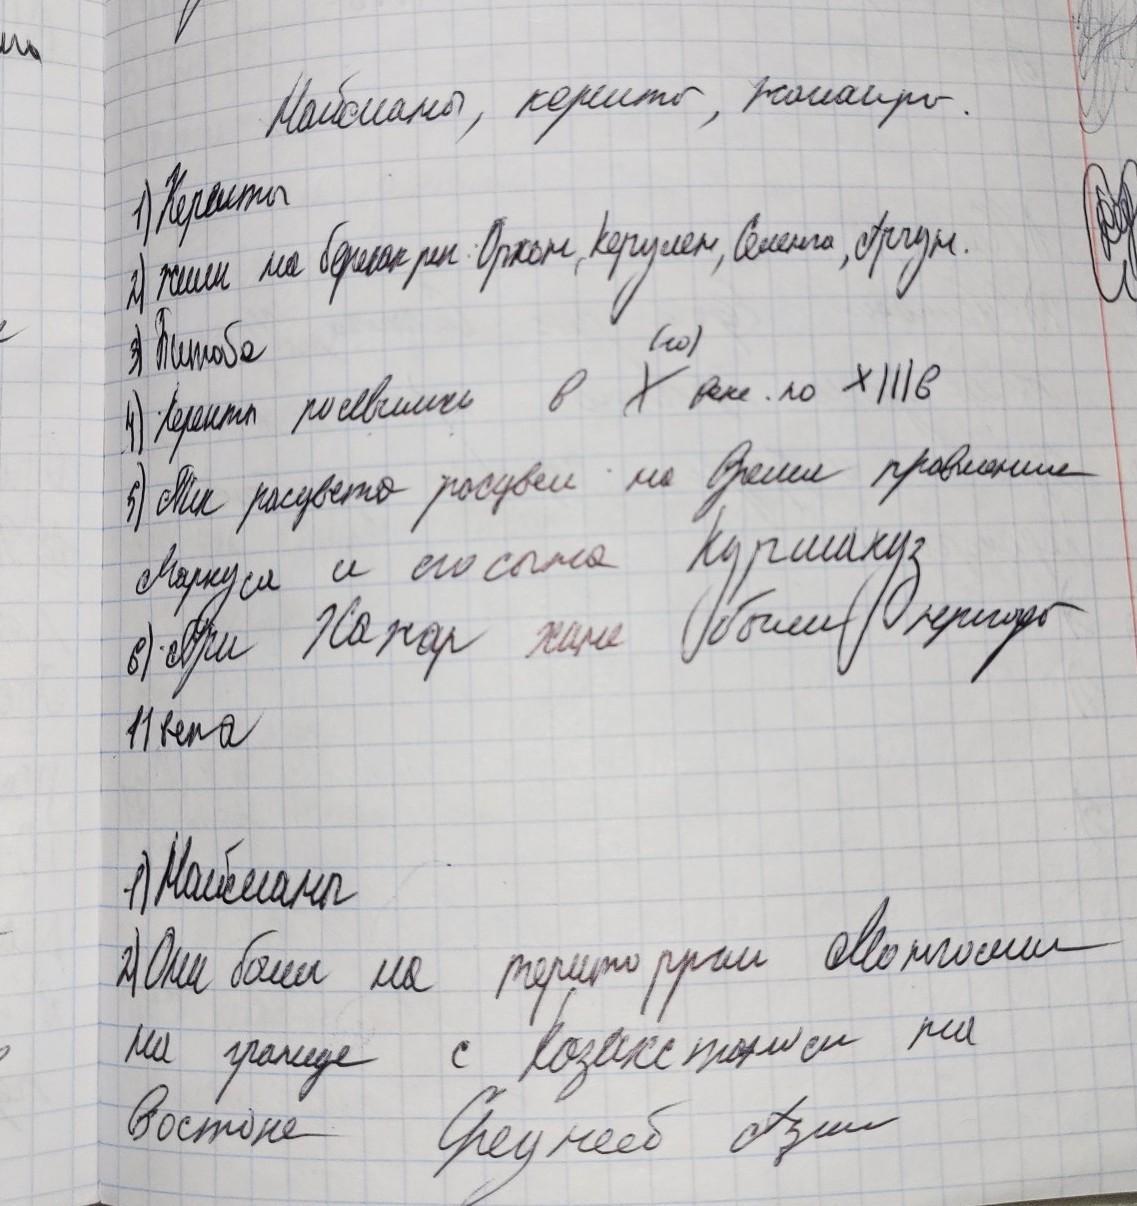 Найманы, кереиты, жалаиры.
1) Кереиты
2) жили на берегах рек: Орхон, Керулен, Селенга, Аргун.
3) Битоба
4) Кереиты появились в X (10) веке. по XIII в
5) Пик расцвета расцвел на Время правления
Маркуса и его сына Куршакуз
6) При были периоды
11 века
1) Найманы
2) Они были на територрии Монголии
на границе с Козакстаном на
Востоке Средней Азии